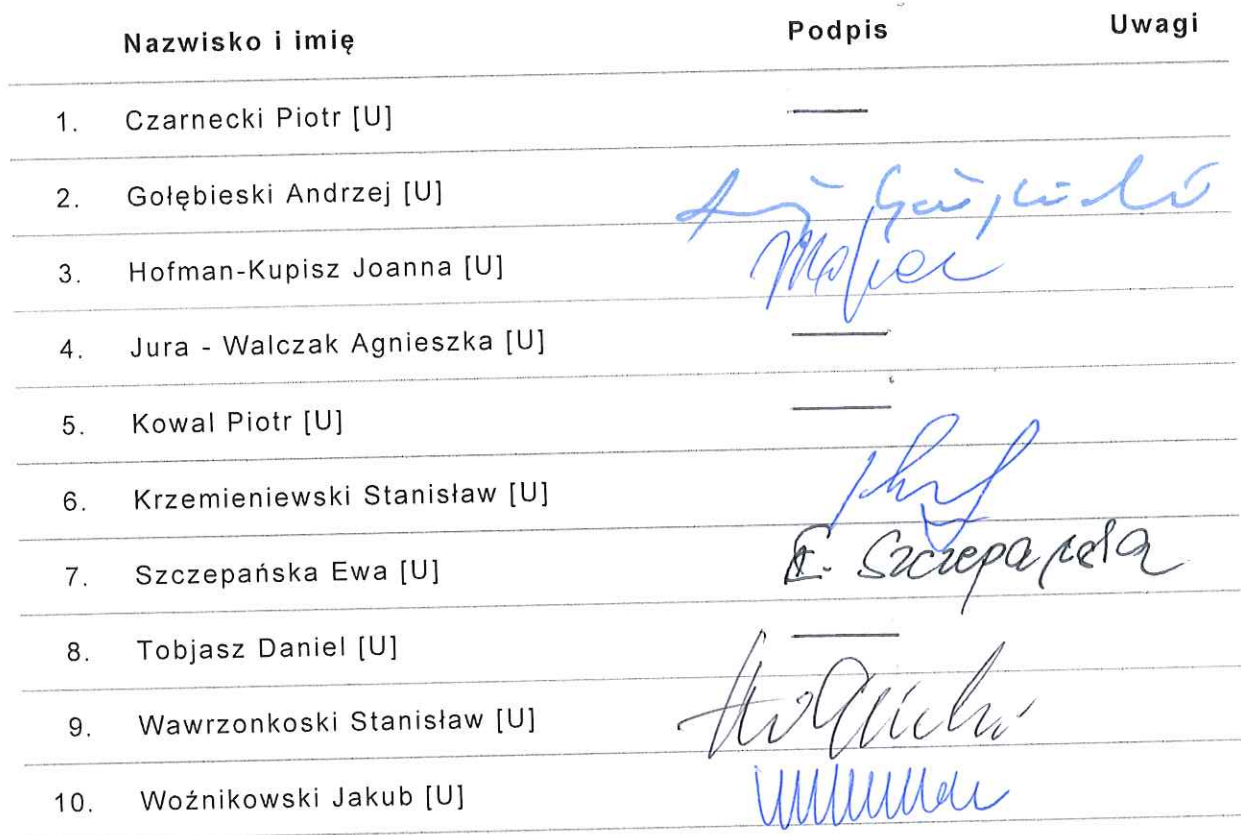 Nazwisko i imię Podpis Uwagi
1. Czarnecki Piotr [U]
2. Gołębieski Andrzej [U]
3. Hofman-Kupisz Joanna [U]
4. Jura - Walczak Agnieszka [U]
5. Kowal Piotr [U]
6. Krzemieniewski Stanisław [U]
7. Szczepańska Ewa [U] E. Szczepańska
8. Tobjasz Daniel [U]
9. Wawrzonkoski Stanisław [U]
10. Woźnikowski Jakub [U]